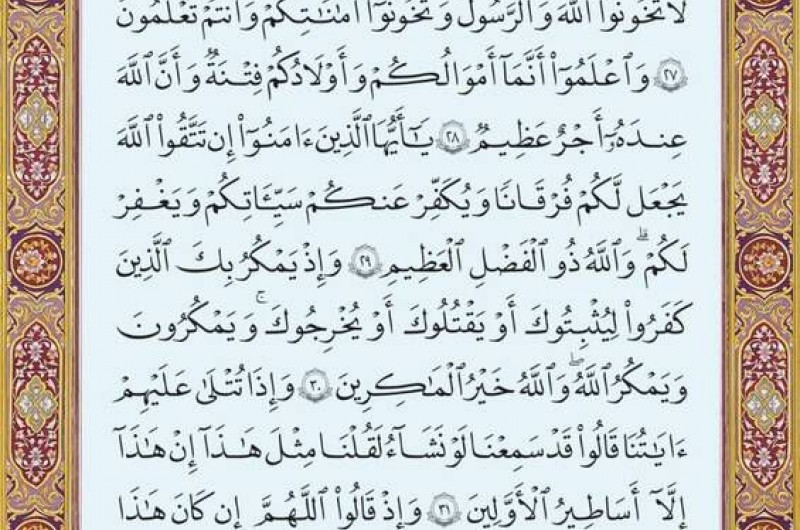 لَا تَخُونُوا۟ ٱللَّهَ وَٱلرَّسُولَ وَتَخُونُوٓا۟ أَمَٰنَٰتِكُمْ وَأَنتُمْ تَعْلَمُونَ
٢٧ وَٱعْلَمُوٓا۟ أَنَّمَآ أَمْوَٰلُكُمْ وَأَوْلَٰدُكُمْ فِتْنَةٌ وَأَنَّ ٱللَّهَ
عِندَهُۥٓ أَجْرٌ عَظِيمٌ ٢٨ يَٰٓأَيُّهَا ٱلَّذِينَ ءَامَنُوٓا۟ إِن تَتَّقُوا۟ ٱللَّهَ
يَجْعَل لَّكُمْ فُرْقَانًا وَيُكَفِّرْ عَنكُمْ سَيِّـَٔاتِكُمْ وَيَغْفِرْ
لَكُمْ ۗ وَٱللَّهُ ذُو ٱلْفَضْلِ ٱلْعَظِيمِ ٢٩ وَإِذْ يَمْكُرُ بِكَ ٱلَّذِينَ
كَفَرُوا۟ لِيُثْبِتُوكَ أَوْ يَقْتُلُوكَ أَوْ يُخْرِجُوكَ ۚ وَيَمْكُرُونَ
وَيَمْكُرُ ٱللَّهُ ۖ وَٱللَّهُ خَيْرُ ٱلْمَٰكِرِينَ ٣٠ وَإِذَا تُتْلَىٰ عَلَيْهِمْ
ءَايَٰتُنَا قَالُوا۟ قَدْ سَمِعْنَا لَوْ نَشَآءُ لَقُلْنَا مِثْلَ هَٰذَآ إِنْ هَٰذَآ
إِلَّآ أَسَٰطِيرُ ٱلْأَوَّلِينَ ٣١ وَإِذْ قَالُوا۟ ٱللَّهُمَّ إِن كَانَ هَٰذَا